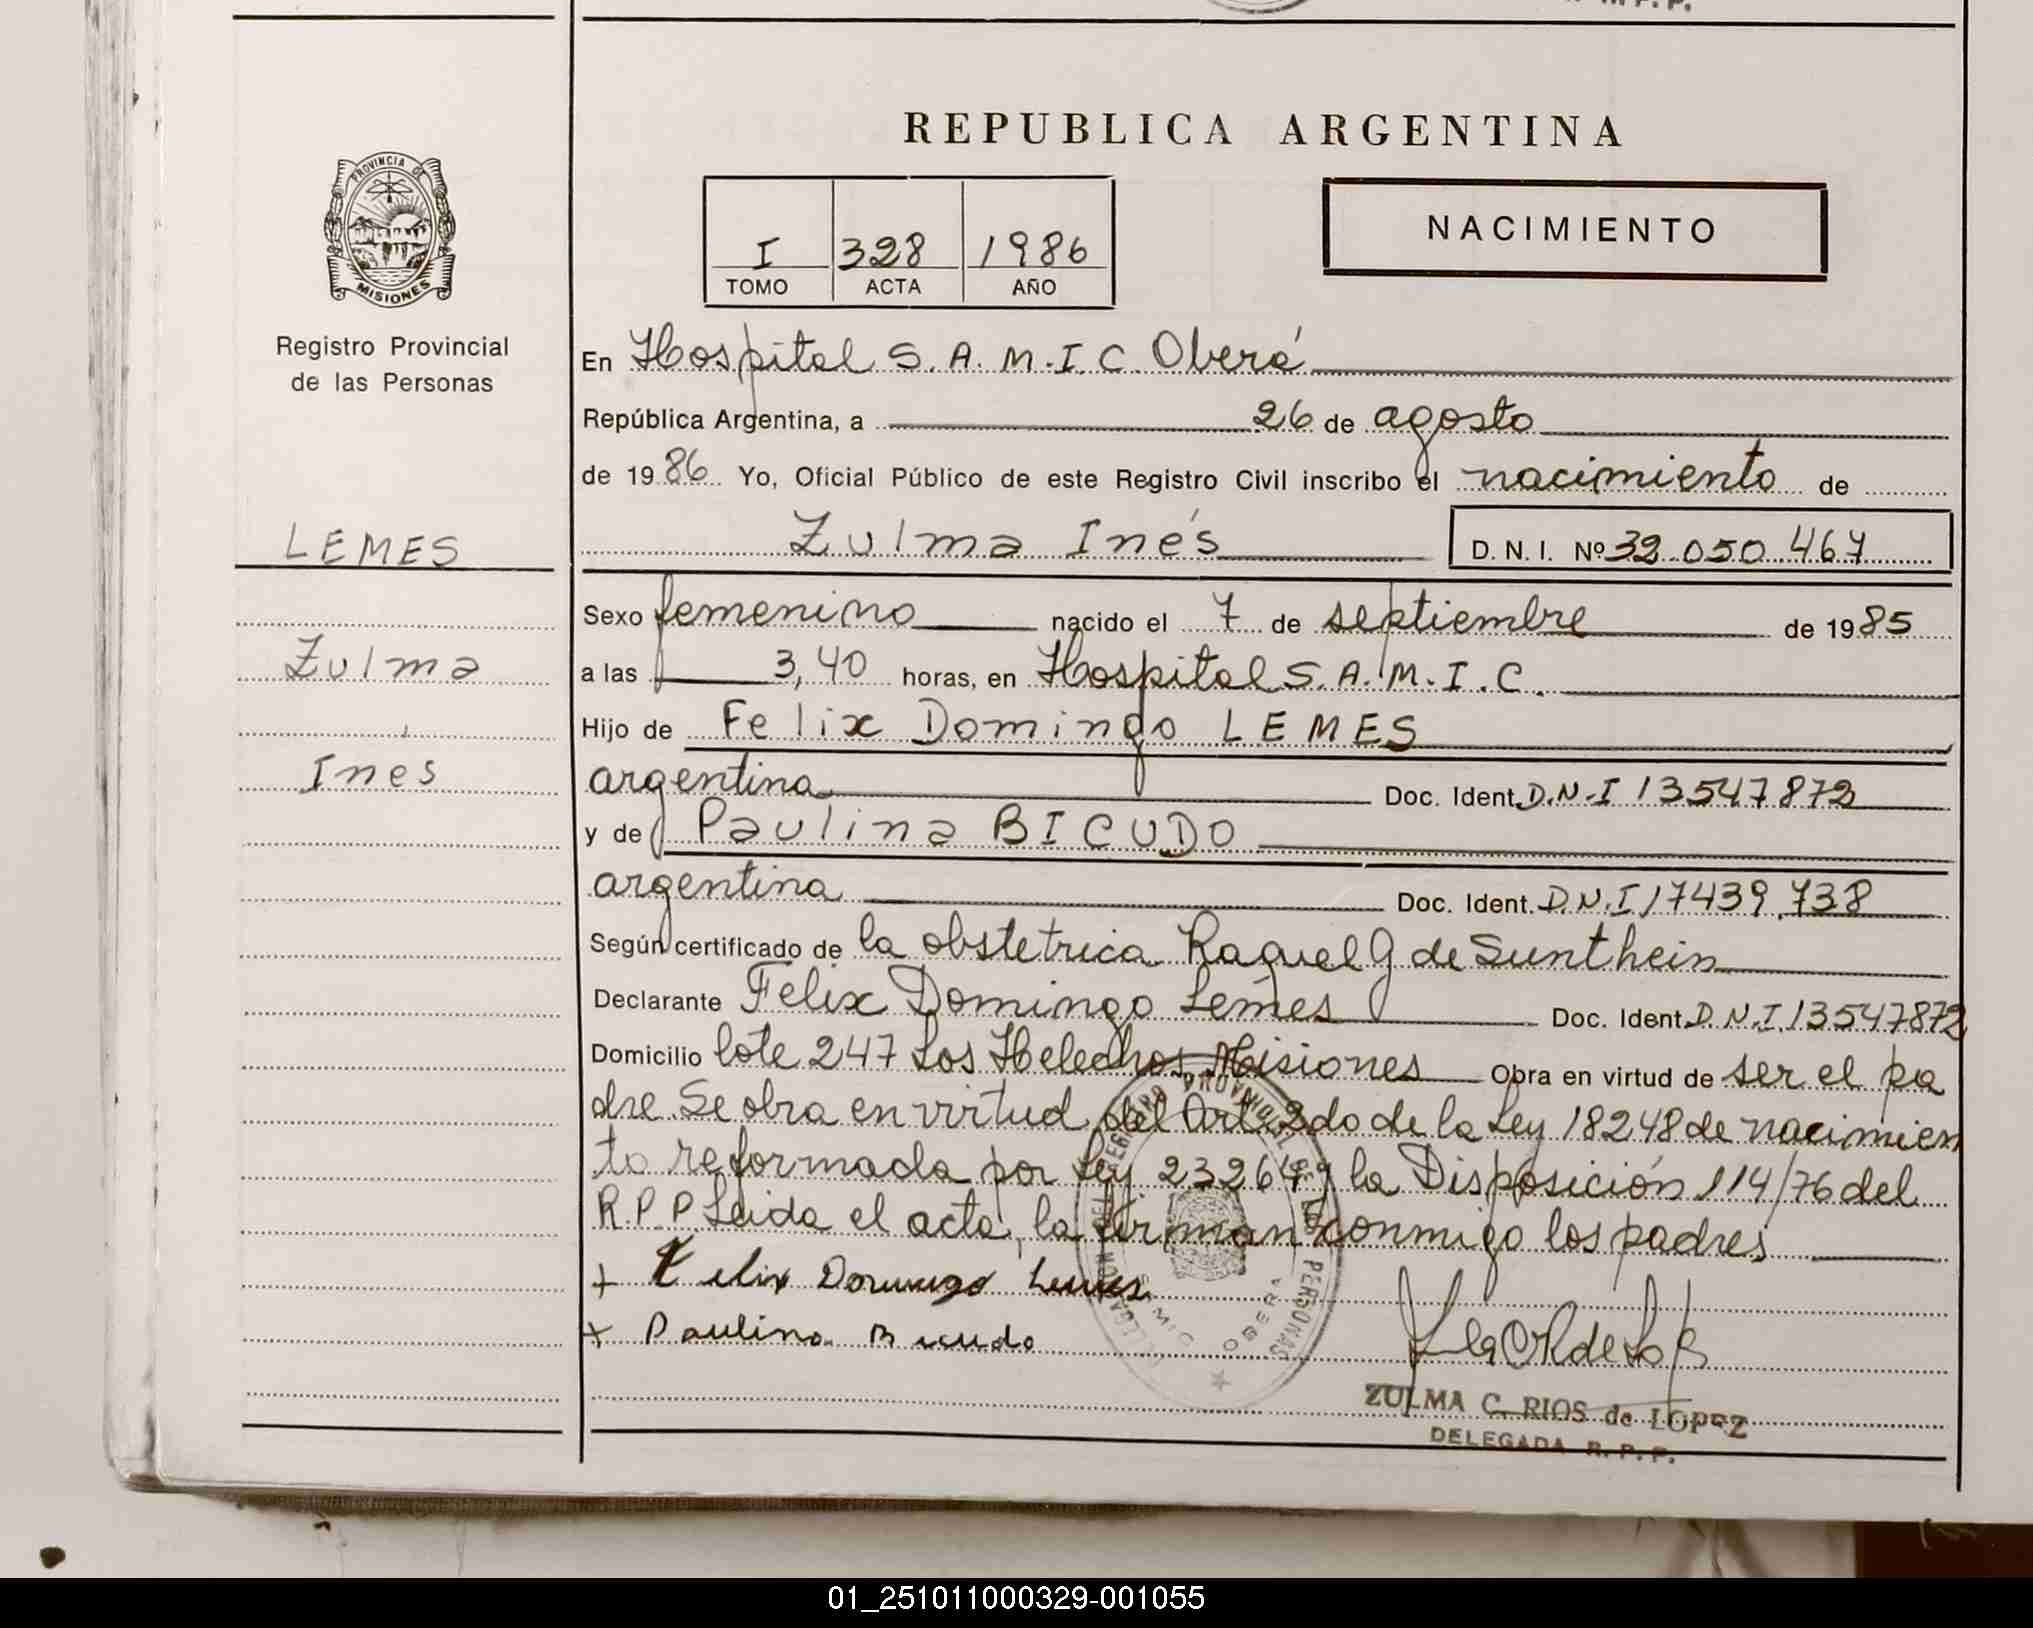 REPUBLICA ARGENTINA
I 328 1986
TOMO ACTA AÑO
NACIMIENTO
PROVINCIA DE
MISIONES
Registro Provincial
de las Personas
LEMES
Zulma
Inés
En Hospital S.A.M.I.C. Oberá
República Argentina, a 26 de agosto
de 1986 Yo, Oficial Público de este Registro Civil inscribo el nacimiento de
Zulma Inés D.N.I. Nº 32.050.467
Sexo femenino nacido el 7 de septiembre de 1985
a las 3,40 horas, en Hospital S.A.M.I.C.
Hijo de Felix Domingo LEMES
argentina Doc. Ident. D.N.I 13547872
y de Paulina BICUDO
argentina Doc. Ident. D.N.I 17439.738
Según certificado de la obstetrica Raquel G de Sunthein
Declarante Felix Domingo Lemes Doc. Ident. D.N.I 13547872
Domicilio lote 247 Los Helechos Misiones Obra en virtud de ser el pa
dre. Se obra en virtud del Art 2do de la Ley 18248 de nacimien
to reformada por Ley 23264 y la Disposición 114/76 del
R.P.P Leida el acta, la firman conmigo los padres
+ Felix Domingo Lemes
+ Paulina Bicudo
DELEGACION DEL REGISTRO PROVINCIAL DE LAS PERSONAS
SAMIC OBERA
ZULMA C. RIOS de LOPEZ
DELEGADA R.P.P.
01_251011000329-001055